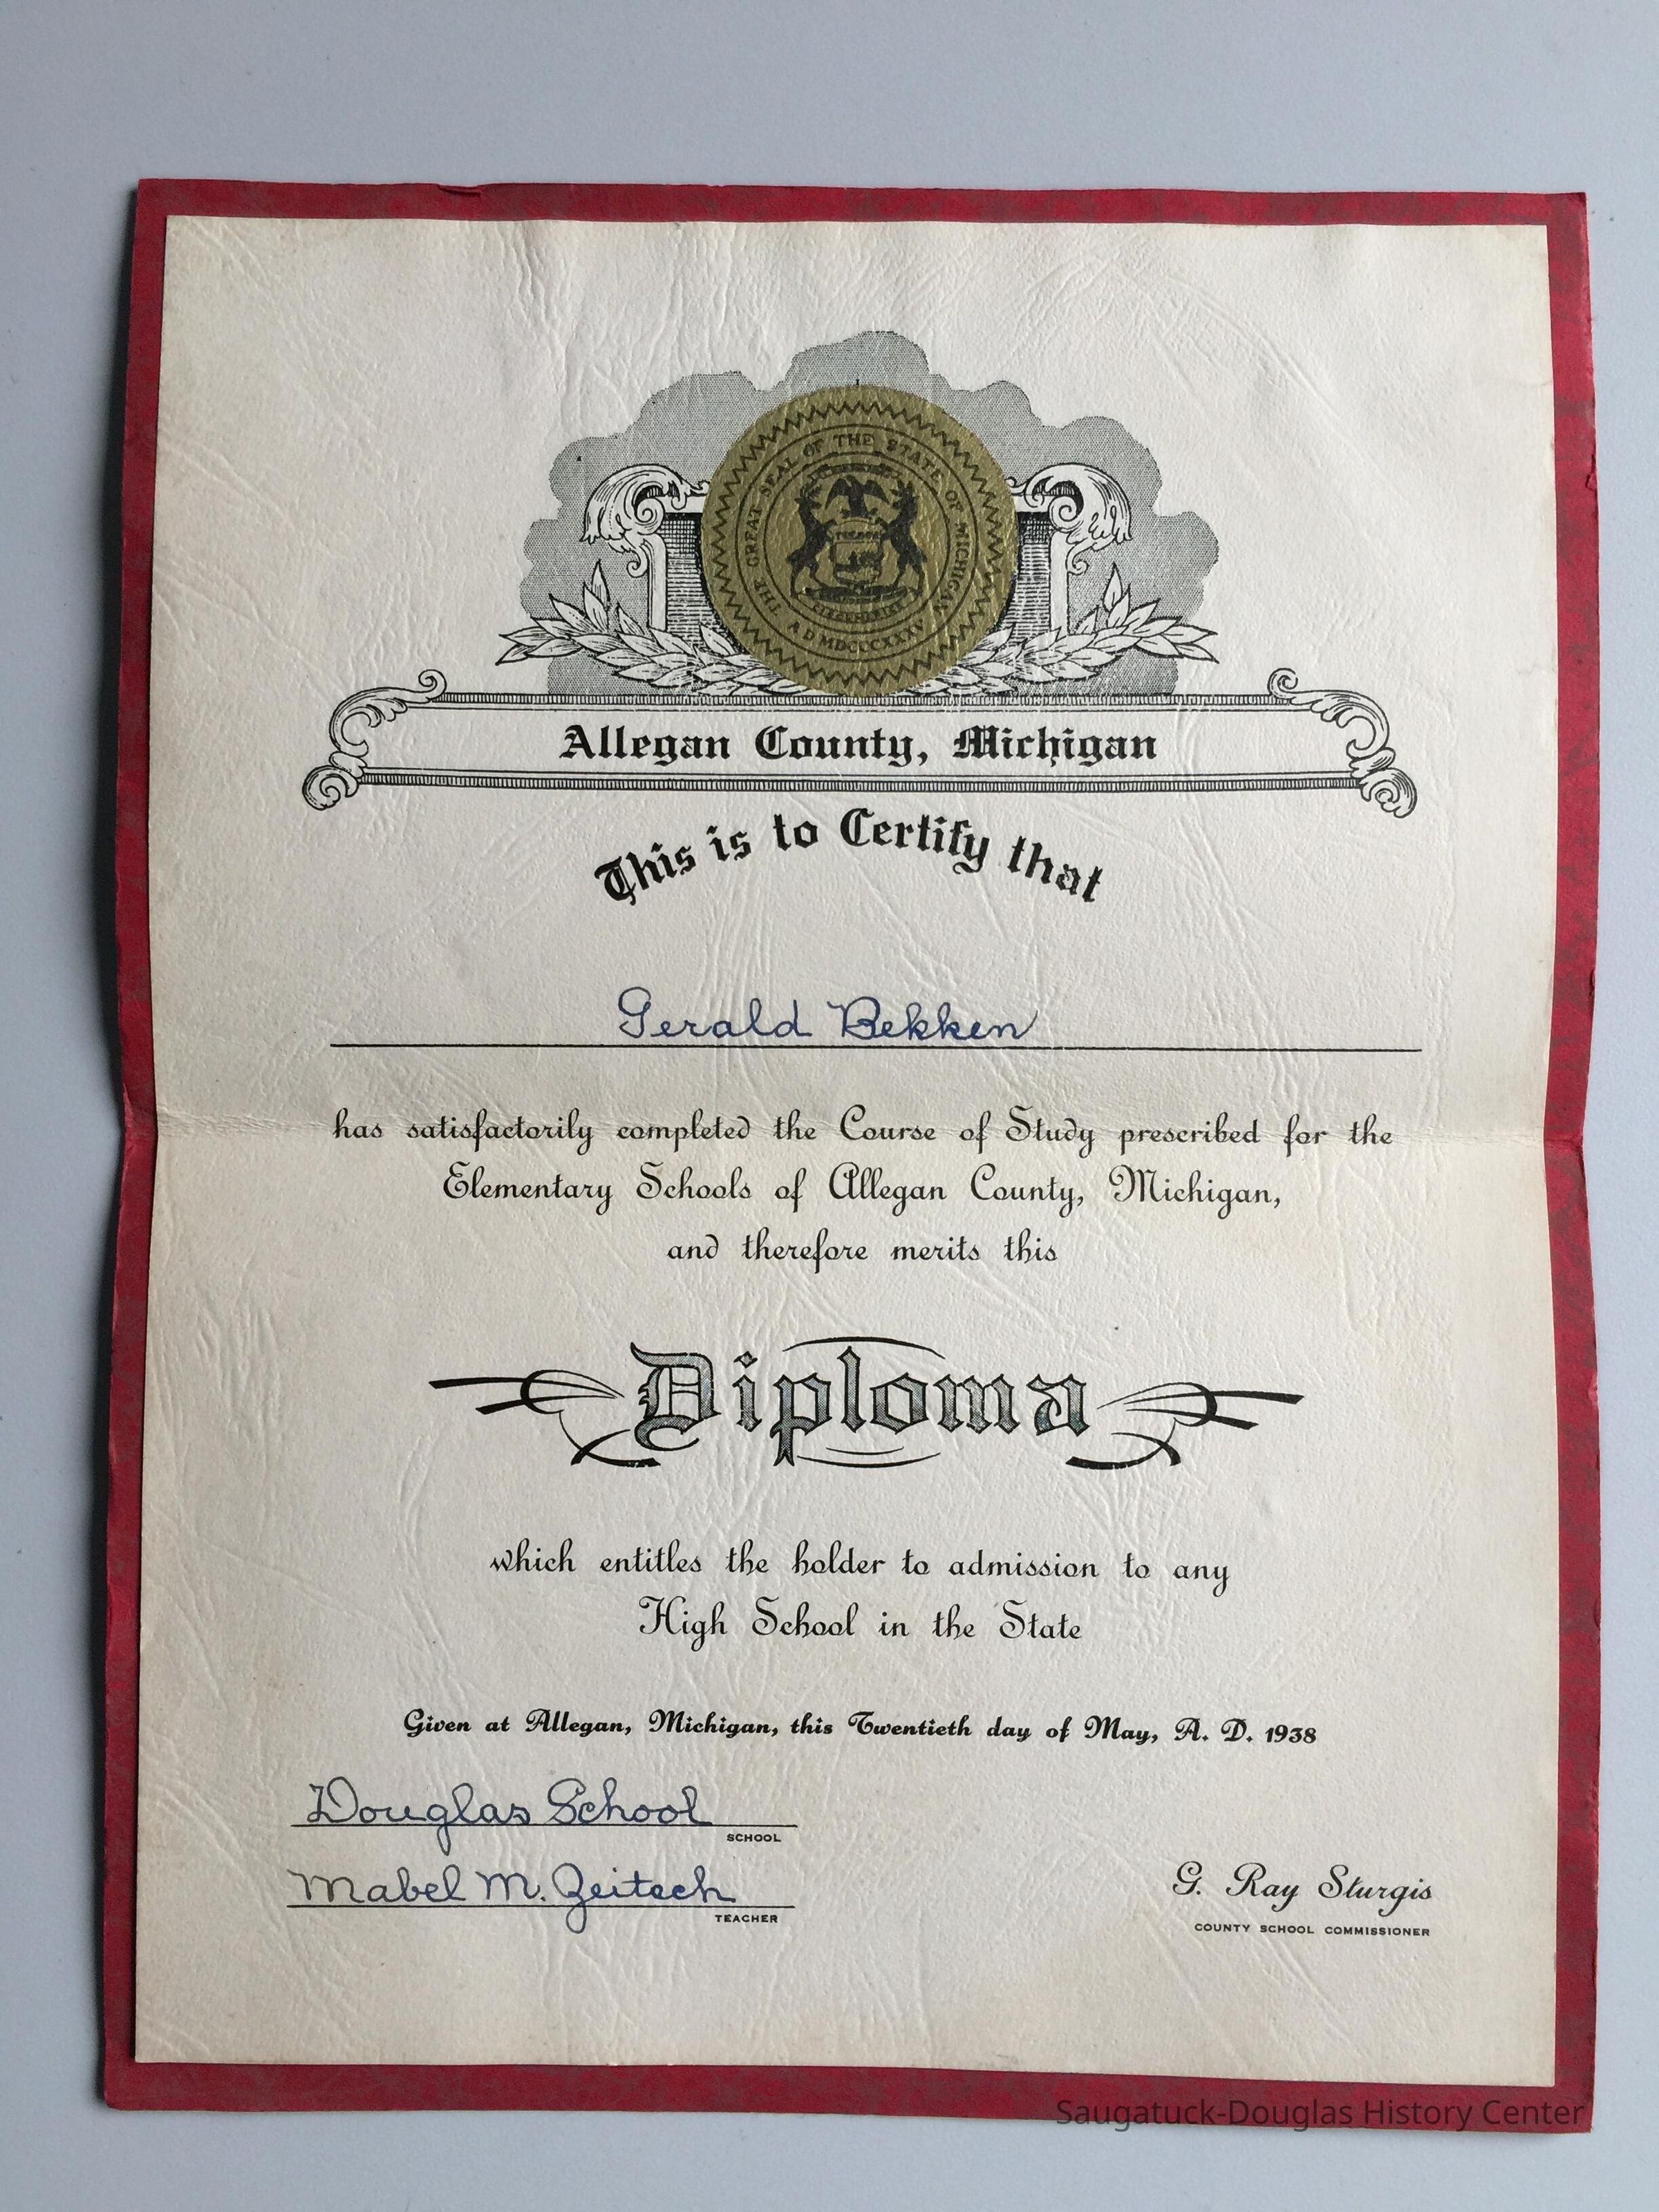 THE GREAT SEAL OF THE STATE OF MICHIGAN
TUEBOR
A D MDCCCXXXV
Allegan County, Michigan
This is to Certify that
Gerald Bekken
has satisfactorily completed the Course of Study prescribed for the
Elementary Schools of Allegan County, Michigan,
and therefore merits this
Diploma
which entitles the holder to admission to any
High School in the State
Given at Allegan, Michigan, this Twentieth day of May, A. D. 1938
Douglas School
SCHOOL
Mabel M. Zeitsch
TEACHER
G. Ray Sturgis
COUNTY SCHOOL COMMISSIONER
Saugatuck-Douglas History Center